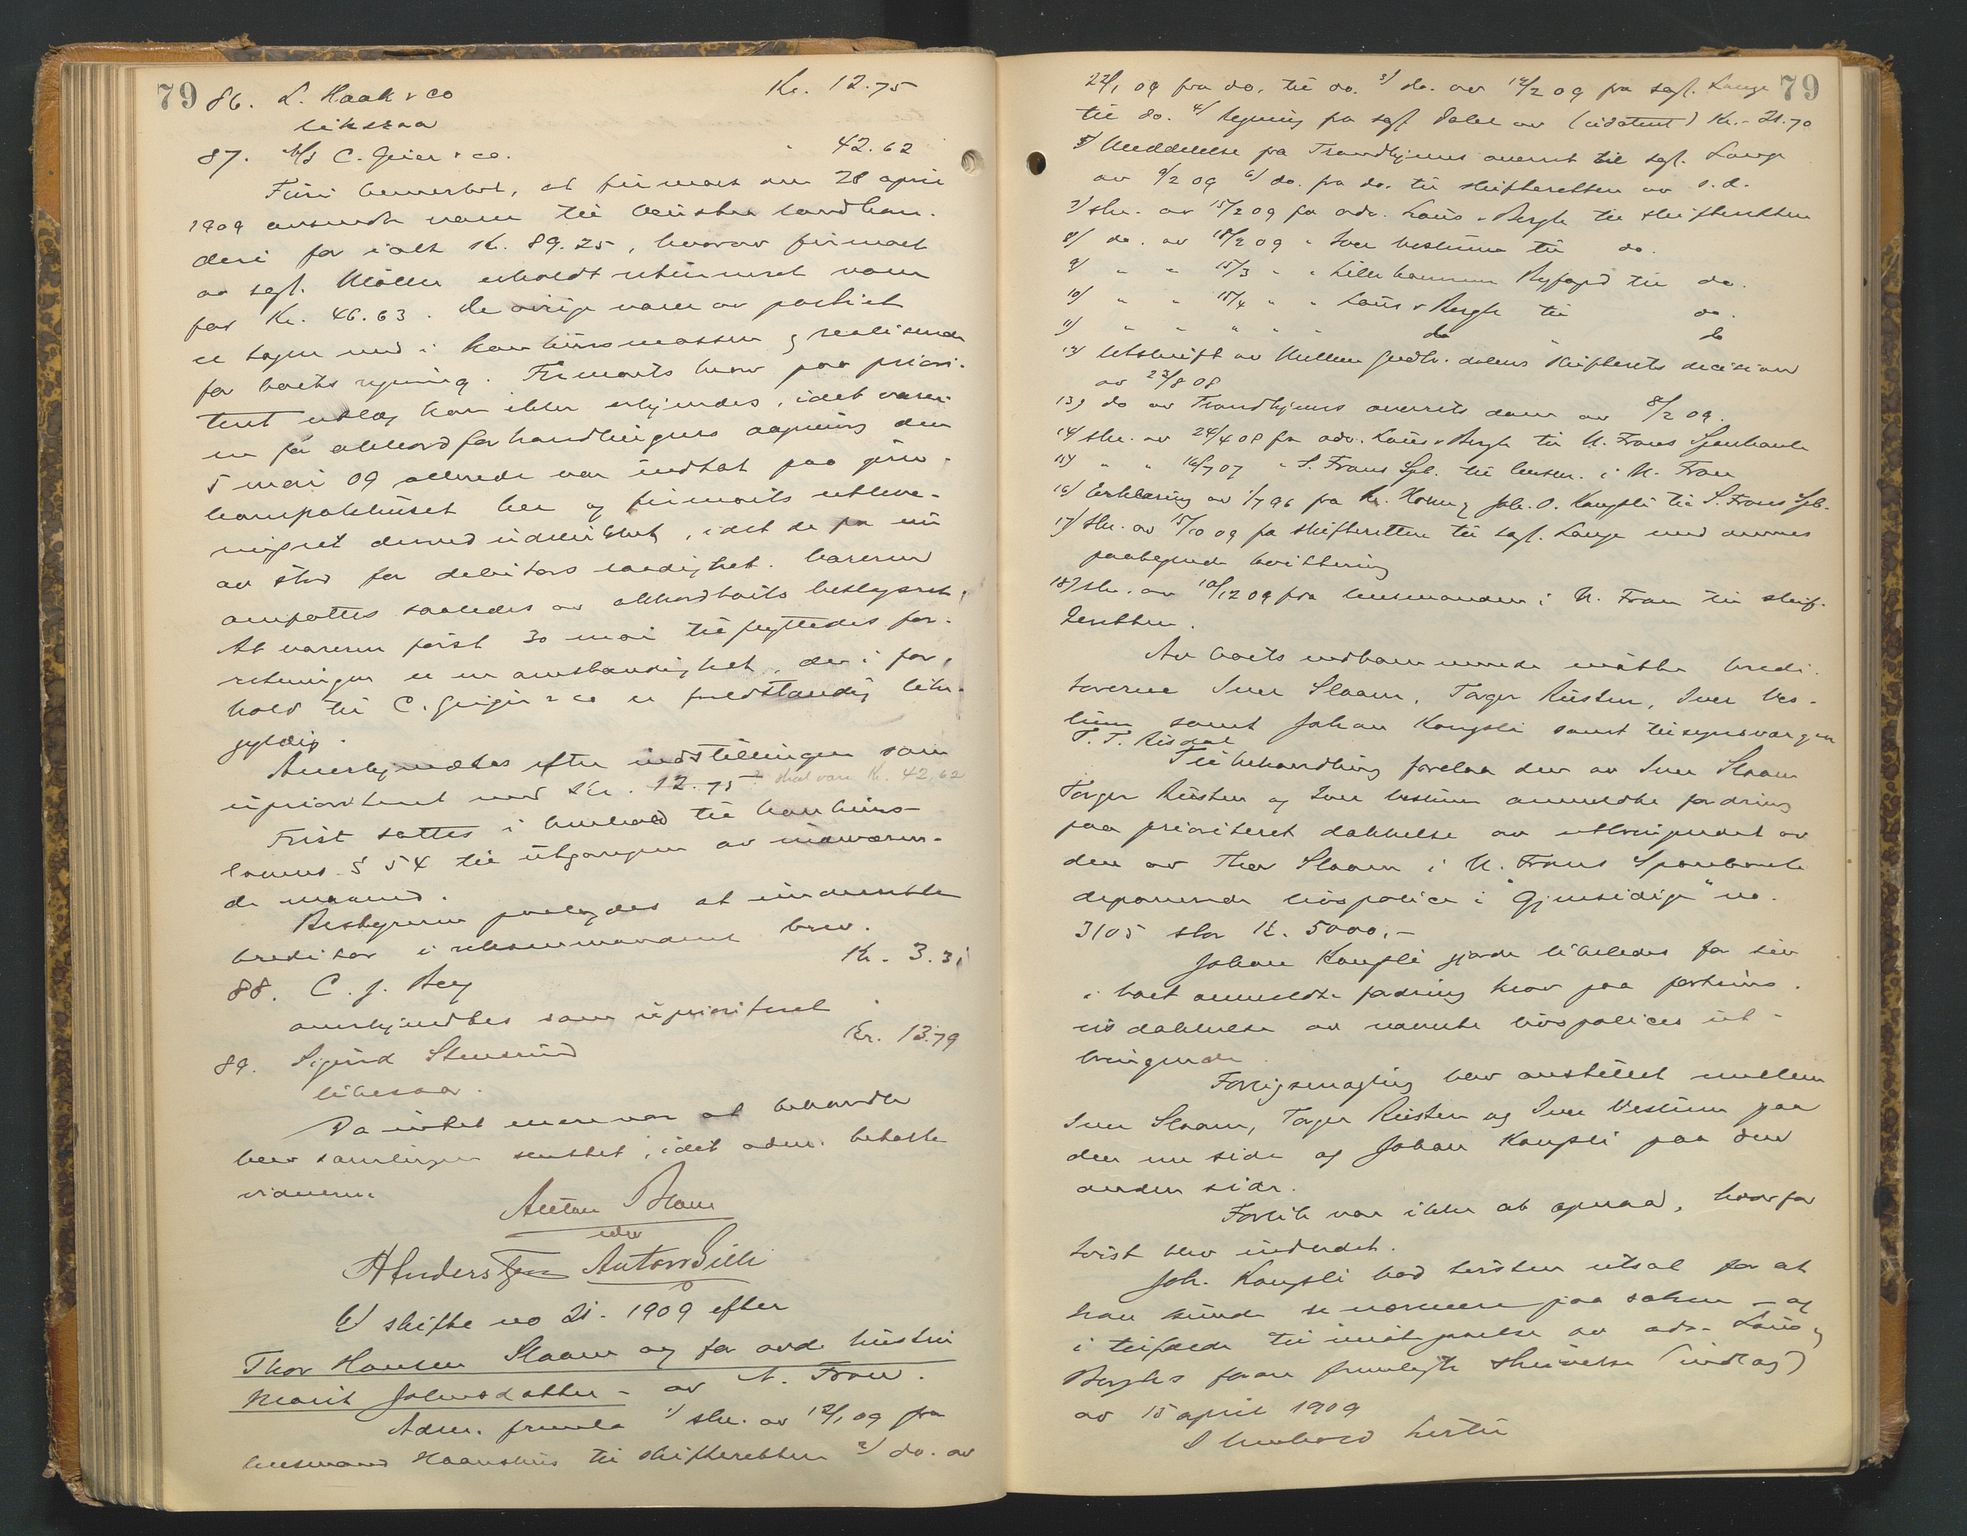 79
86. L. Haak & co Kr. 12.75
likesaa
87. A/S C. Geier & co. " 42.62
Fuld. bemerket, at firmaet den 28 april
1909 avsendte varer til Leristen landhan-
deri for ialt Kr. 89.25, hvorav firmaet
av sagf. Møller erholdt utleveret varer
for Kr. 46.63. De øvrige varer av partiet
er tagen med i konkursmassen og realiseredes
for boets regning. Firmaets krav paa priori-
tert utlæg kan ikke erkjendes, idet varer-
ne før akkordforhandlingens aapning den
5 mai 09 allerede var indtat paa jern-
banepakhuset her og firmaets utleve-
ringsret dermed udelukket, idet de fra nu
av stod for debitors raadighet. Varerne
ansattes saaledes av akkordboets bestyrer.
At varerne først 30 mai tilflyttedes for-
retningen er en omstændighet, der i for-
hold til C. Geijer & co er fuldstændig like-
gyldig.
Anerkjendtes efter indstillingen som
uprioritert med Kr. 12.75 skal være Kr. 42,62
Frist sattes i henhold til konkurs-
lovens § 54 til utgangen av indeværen-
de maaned.
Bestyreren paalagdes at underrette
kreditor i rekommanderet brev.
88. C. J. Bey Kr. 3.31
anerkjendtes som uprioriteret
89. Sigurd Stensrud Kr. 13.79
likesaa.
Da intet mere var at behandle
blev samlingen sluttet, idet adm. betalte
vidnerne
Anton Blom
edv
A Anderssen Anton Lilli
I skifte no 21. 1909 efter
Thor Hansen Slaam og før døde hustru
Marit Johnsdatter – av N. Fron.
Adm. fremla 1/ skr. av 12/1 09 fra
lensmand Haanshus til skifteretten 2/ do. av
79
22/1 09 fra do. til do. 3/ do. av 14/2 09 fra sagf. Lange
til do. 4/ regning fra sagf. Dahl av (udatert) Kr. 21.70
5/ Meddelelse fra Trondhjems overret til sagf. Lange
av 9/2 09 6/ do. fra do. til skifteretten av s.d.
7/ skr. av 15/2 09 fra adv. Lous & Bergh til skifteretten
8/ do. av 18/2 09 " Iver Veslum til do.
9/ " " 15/3 " " Lillehammer Byfoged til do.
10/ " " 15/4 " " Lous & Bergh til do.
11/ " " " " " do do
12/ Utskrift av Mellem Gudbr.dalens skifterets decision
av 22/8 08
13) do av Trondhjems overrets dom av 8/2 09.
14/ skr. av 24/4 08 fra adv. Lous & Bergh til N. Frons Sparebank
15) " " 16/7 07 " S. Frons Spb. til lensm. i N. Fron
16) Erklæring av 1/7 96 fra Kr. Horn og Joh. O. Kongsli til S. Frons Spb.
17) skr. av 5/10 09 fra skifteretten til sagf. Lange med dennes
paategnede kvittering
18) skr. av 10/12 09 fra lensmanden i N. Fron til skif-
teretten.
Av boets vedkommende møtte kredi-
torerne Iver Slaam, Torger Rusten, Iver Ves-
lum samt Johan Kongsli samt tilsynsvergen
T. T. Risdal
Til behandling forelaa den av Iver Slaam
Torger Rusten og Iver Veslum anmeldte fordring
paa prioriteret dækkelse av utbringendet av
den av Thor Slaam i N. Frons Sparebank
deponerede livspolice i "Gjensidige" no.
3105 stor Kr. 5000.-
Johan Kongsli gjorde likeledes for sin
i boet anmeldte fordring krav paa fortrins-
vis dækkelse av nævnte livspolices ut-
bringende.
Forligsmægling blev anstillet mellem
Iver Slaam, Torger Rusten og Iver Veslum paa
den ene side og Johan Kongsli paa den
anden side.
Forlik var ikke at opnaa, hvorfor
tvist blev indledet.
Joh. Kongsli bad tvisten utsat for at
han kunde se nærmere paa saken – og
i tilfælde til imøtegaaelse av adv. Lous &
Berghs foran fremlagte skrivelse (indlæg)
av 15 april 1909
I henhold hertil